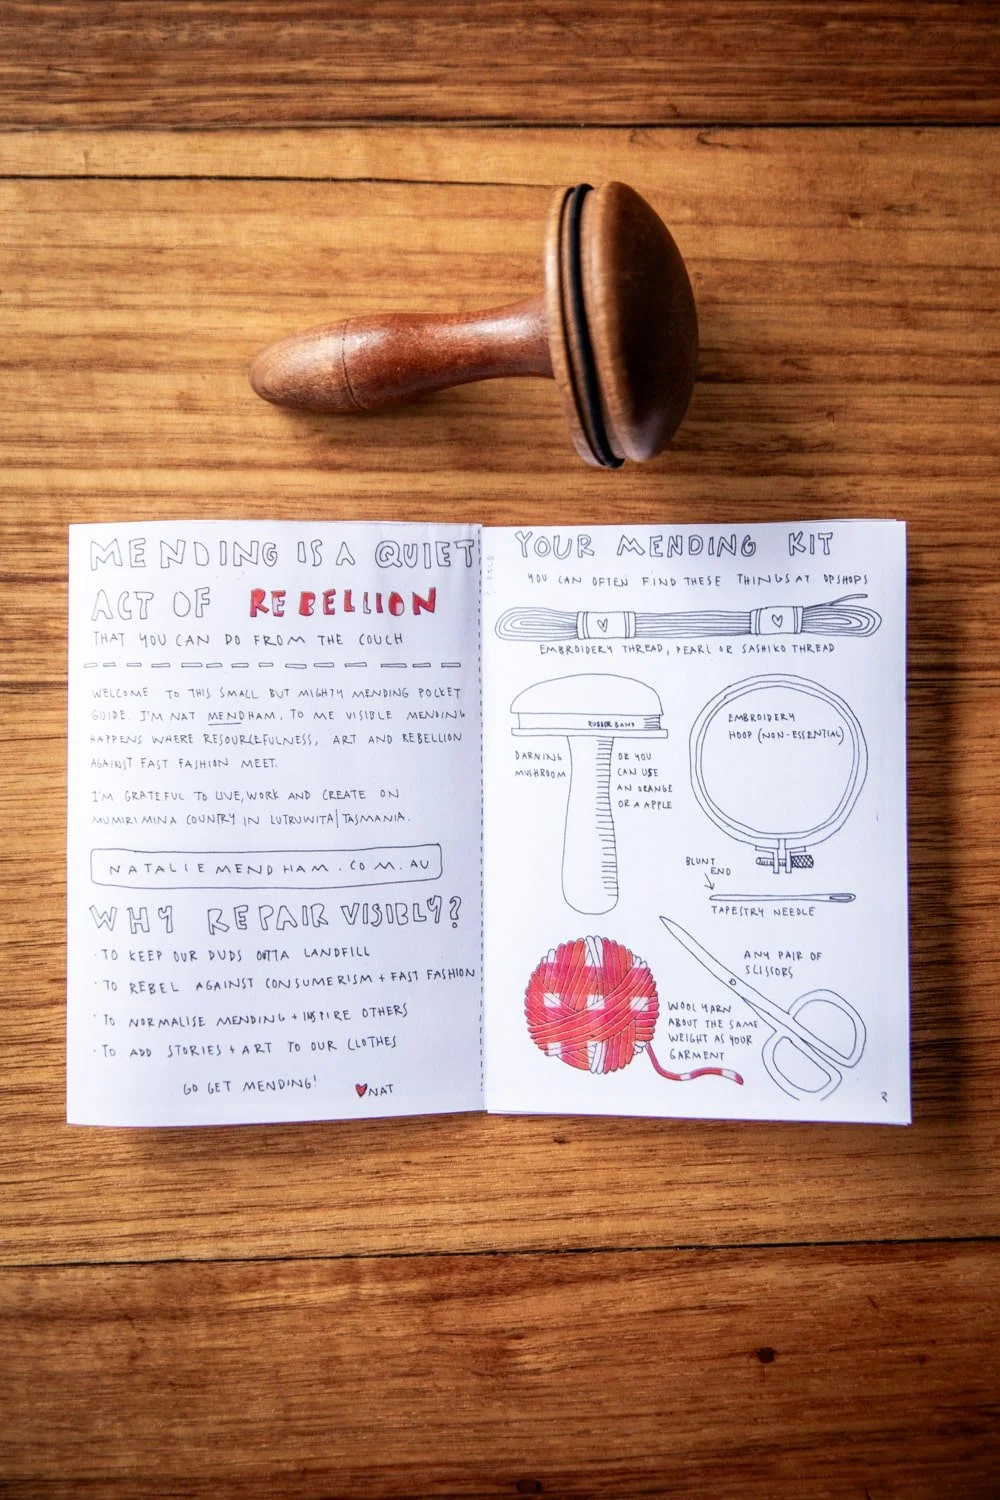 MENDING IS A QUIET
ACT OF REBELLION
THAT YOU CAN DO FROM THE COUCH
WELCOME TO THIS SMALL BUT MIGHTY MENDING POCKET
GUIDE. I'M NAT MENDHAM, TO ME VISIBLE MENDING
HAPPENS WHERE RESOURCEFULNESS, ART AND REBELLION
AGAINST FAST FASHION MEET.
I'M GRATEFUL TO LIVE, WORK AND CREATE ON
MUMIRIMINA COUNTRY IN LUTRUWITA|TASMANIA.
NATALIEMENDHAM.COM.AU
WHY REPAIR VISIBLY?
· TO KEEP OUR DUDS OUTTA LANDFILL
· TO REBEL AGAINST CONSUMERISM + FAST FASHION
· TO NORMALISE MENDING + INSPIRE OTHERS
· TO ADD STORIES + ART TO OUR CLOTHES
GO GET MENDING!
♥NAT
YOUR MENDING KIT
YOU CAN OFTEN FIND THESE THINGS AT OPSHOPS
EMBROIDERY THREAD, PEARL OR SASHIKO THREAD
RUBBER BAND
DARNING
MUSHROOM
OR YOU
CAN USE
AN ORANGE
OR A APPLE
EMBROIDERY
HOOP (NON-ESSENTIAL)
BLUNT
END
TAPESTRY NEEDLE
ANY PAIR OF
SCISSORS
WOOL YARN
ABOUT THE SAME
WEIGHT AS YOUR
GARMENT
2